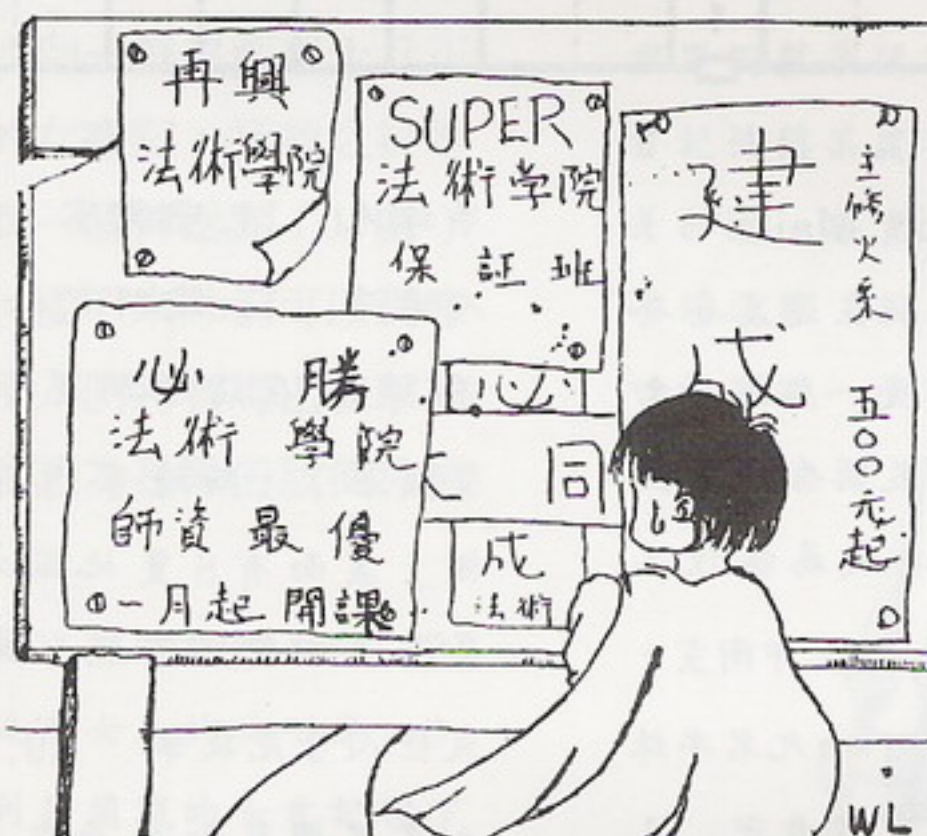 再興
法術學院
SUPER
法術学院
保証班
建
成
主修火系 五〇〇元起
必勝
法術學院
師資最優
一月起開課
必
同
成
法術
WL